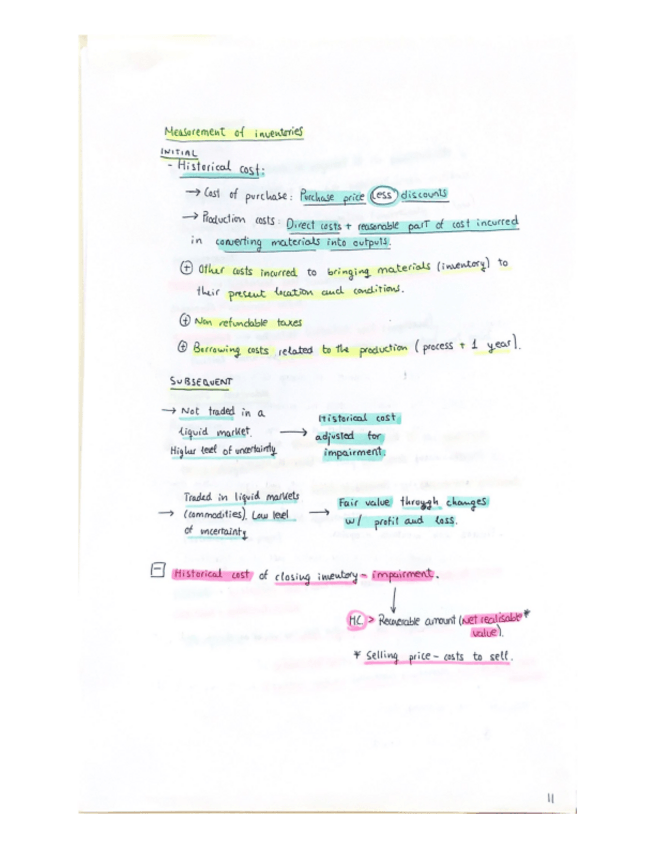 Measurement of inventories
INITIAL
- Historical cost:
→ Cost of purchase: Purchase price (less) discounts
→ Production costs: Direct costs + reasonable part of cost incurred
in converting materials into outputs.
⊕ Other costs incurred to bringing materials (inventory) to
their present location and conditions.
⊕ Non refundable taxes
⊕ Borrowing costs related to the production (process + 1 year).
SUBSEQUENT
→ Not traded in a
liquid market.
Higher level of uncertainty
→ Historical cost
adjusted for
impairment.
→ Traded in liquid markets
(commodities). Low level
of uncertainty
→ Fair value through changes
w/ profit and loss.
⊟ Historical cost of closing inventory - impairment.
↓
HC > Recoverable amount (net realisable *
value).
* Selling price - costs to sell.
11